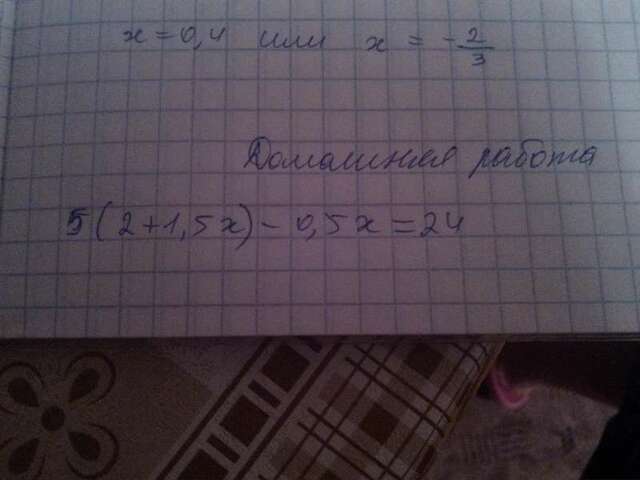 x = 0,4 или x = -2/3
Домашняя работа
5(2+1,5x)-0,5x=24